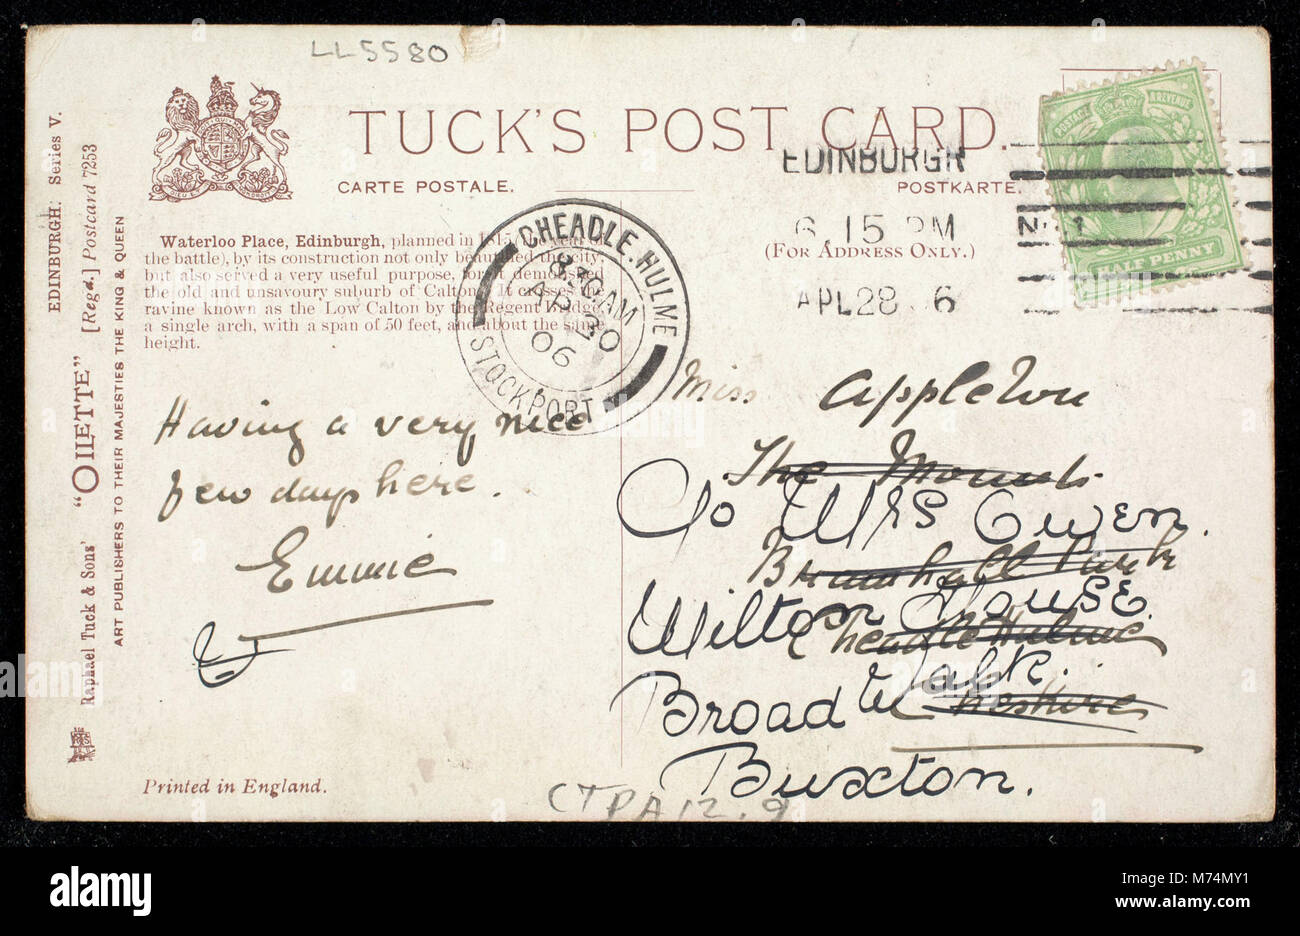 LL5580
TUCK'S POST CARD.
CARTE POSTALE.
POSTKARTE.
(FOR ADDRESS ONLY.)
EDINBURGH. Series V.
[Regd.] Postcard 7253
"OILETTE"
Raphael Tuck & Sons'
ART PUBLISHERS TO THEIR MAJESTIES THE KING & QUEEN
Waterloo Place, Edinburgh, planned in 1815 (the year of
the battle), by its construction not only beautified the city,
but also served a very useful purpose, for it demolished
the old and unsavoury suburb of Calton. It crosses the
ravine known as the Low Calton by the Regent Bridge,
a single arch, with a span of 50 feet, and about the same
height.
CHEADLE-HULME
8 AM
AP 30
06
STOCKPORT
EDINBURGH
6 15 PM
APL 28 6
No 1
POSTAGE & REVENUE
HALF PENNY
Having a very nice
few days here.
Emmie
Miss Appleton
The Mounts
Bramhall Park
Cheadle Hulme
Cheshire
C/o Mrs Owen.
Wilton House.
Broad Walk.
Buxton.
Printed in England.
CTPA12.9
alamy
Image ID: M74MY1
www.alamy.com